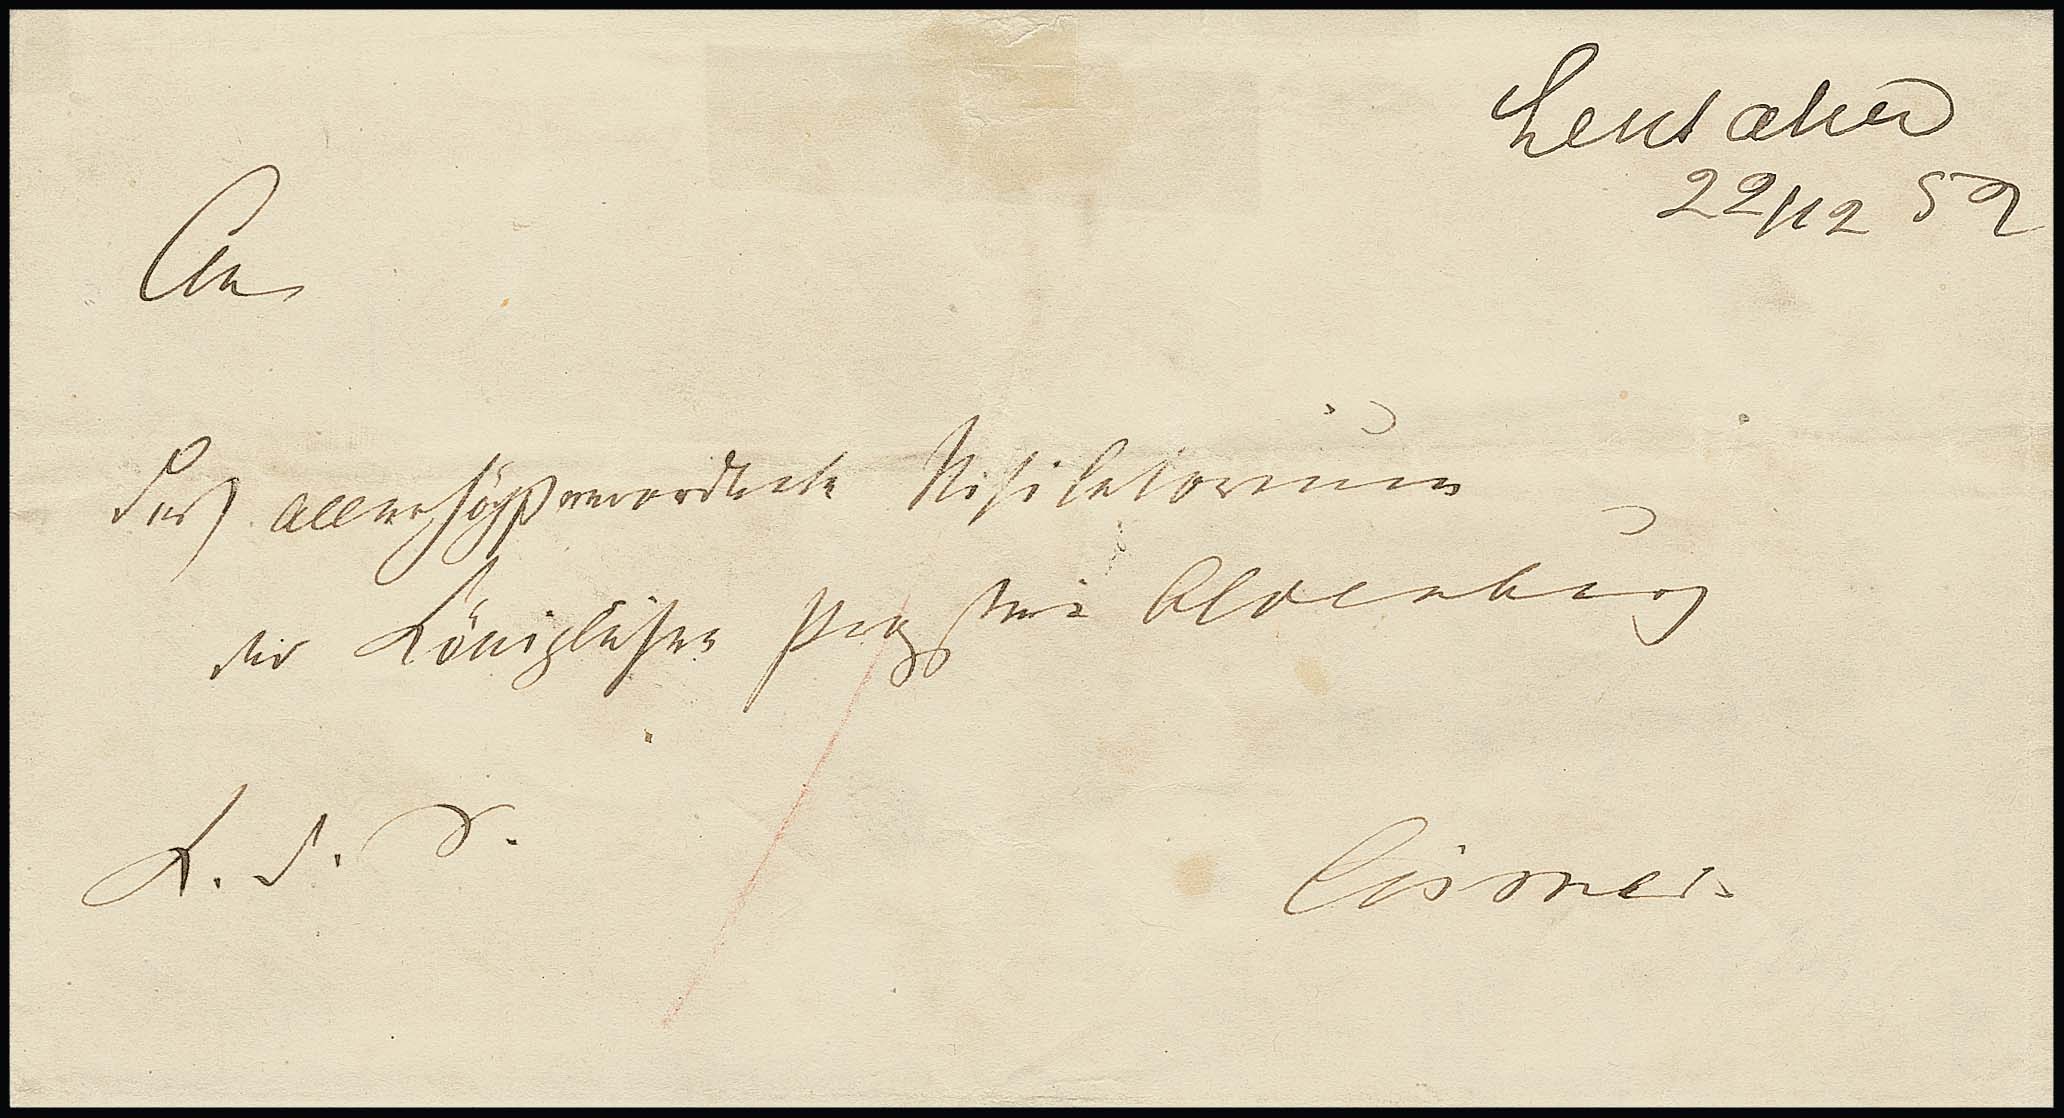 Lensahn
22/12 52
An
das allerhöchstverordnete Visitatorium
der Königlichen Propstei Oldenburg
K. d. S.
Cismar.